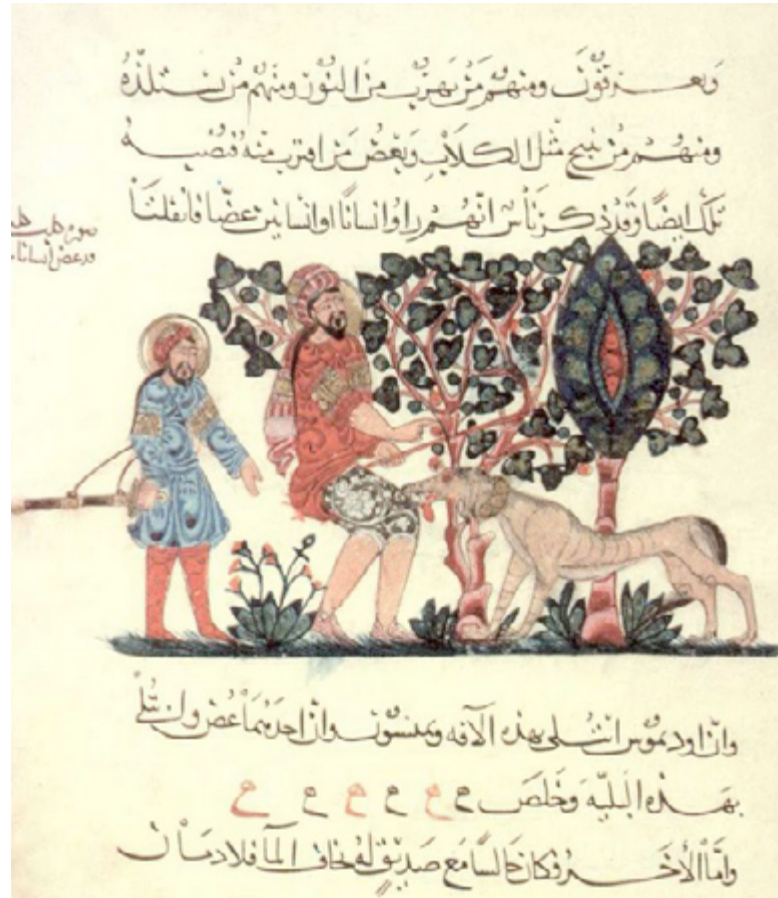 ويعرقون ومنهم من يهرب من النور ومنهم من يستلذه
ومنهم من ينبح مثل الكلاب ويعض من اقترب منه فتصيبه
تلك ايضا وقد ذكر ناس انهم راوا انسانا او انسانين عضا فانفلتا
صورة كلب
قد عض انسانا
وان اوديموس ابتلى بهذه الآفه وان احدهما عض وابتلى
بهذه البليه وخلص
واما الآخر فكان جالسا مع صديق له يخاف الما فلا